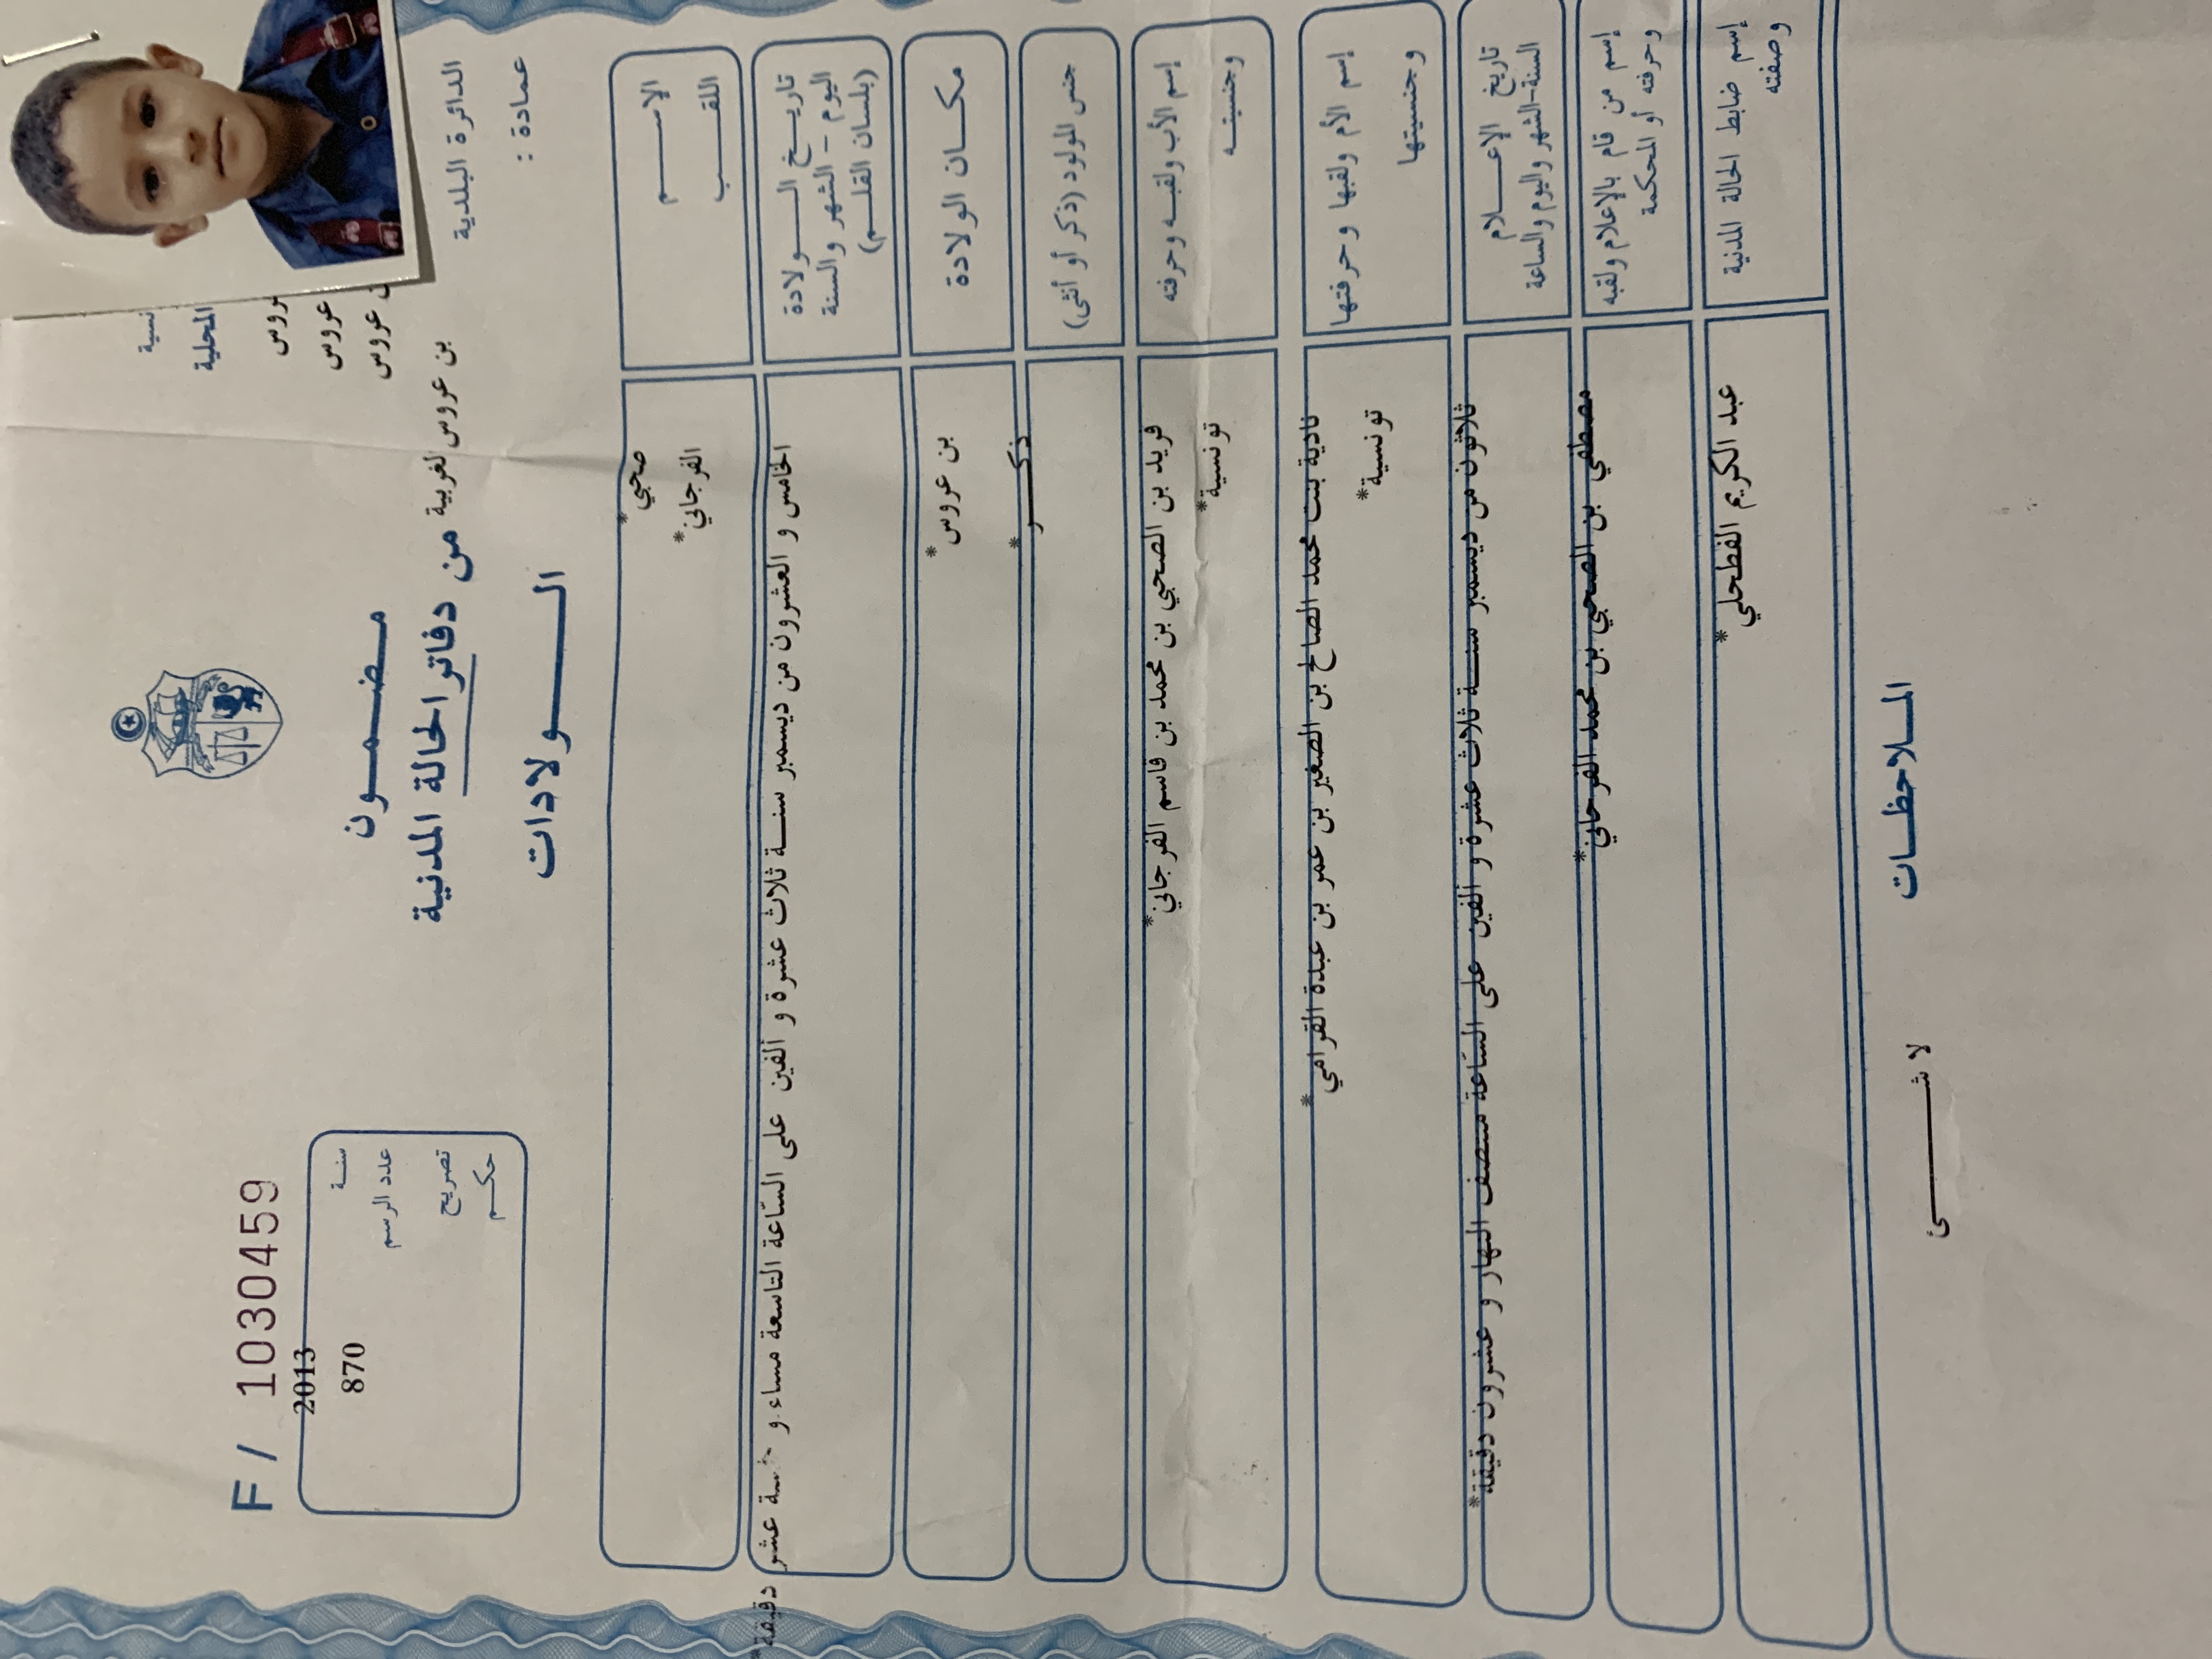 نسية
المحلية
عروس
بن عروس
الدائرة البلدية
بن عروس الغربية
عمادة :
مضمون
من دفاتر الحالة المدنية
الولادات
F / 1030459
سنة 2013
عدد الرسم 870
تصريح
حكم
الاسم
*صحبي
اللقب
*الفرجاني
تاريخ الولادة
اليوم - الشهر والسنة
(بلسان القلم)
الخامس و العشرون من ديسمبر سنة ثلاث عشرة و ألفين على السّاعة التاسعة مساء و عشر دقيقة*
مكان الولادة
*بن عروس
جنس المولود (ذكر أو أنثى)
*ذكر
إسم الأب ولقبه وحرفته
فريد بن الصحبي بن محمد بن قاسم الفرجاني*
وجنسيته
تونسية*
إسم الأم ولقبها وحرفتها
نادية بنت محمد الصالح بن الصغير بن عمر بن عبدة القرامي*
وجنسيتها
تونسية*
تاريخ الإعلام
السنة-الشهر واليوم والساعة
ثلاثون من ديسمبر سنة ثلاث عشرة و ألفين على السّاعة منتصف النهار و عشرون دقيقة*
إسم من قام بالإعلام ولقبه
وحرفته أو المحكمة
مصطفى بن الصحبي بن محمد الفرجاني*
إسم ضابط الحالة المدنية
وصفته
عبد الكريم الفطحلي*
الملاحظات
لا شئ